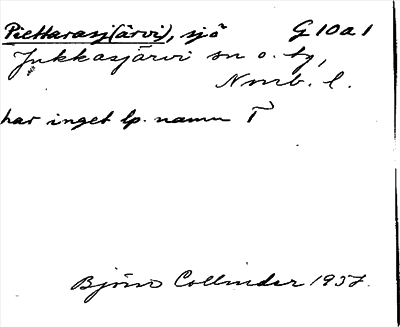 Piettarasj(ärvi), sjö G 10 a 1
Jukkasjärvi sn o. tg,
Nmb. l.
har inget lp. namn
Björn Collinder 1937.